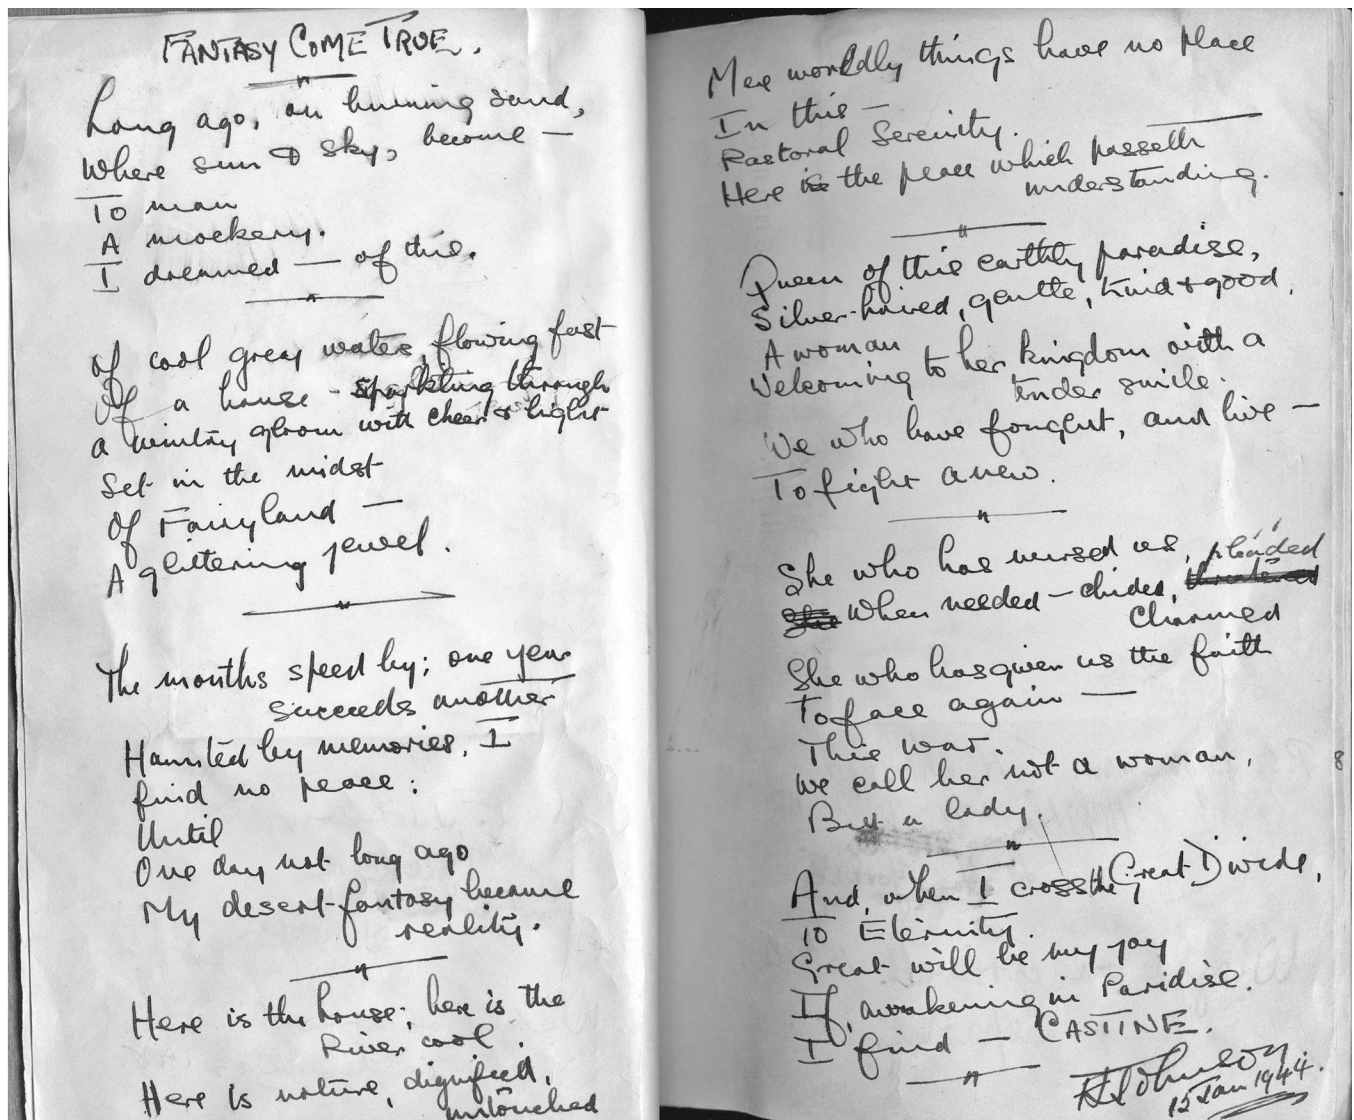 FANTASY COME TRUE.
Long ago, on burning sand,
Where sun & sky, become —
To man
A mockery.
I dreamed — of this.
Of cool grey water, flowing fast
Of a house - sparkling through
a wintry gloom with cheer & light
Set in the midst
Of Fairyland —
A glittering jewel.
The months speed by; one year
succeeds another
Haunted by memories, I
find no peace:
Until
One day not long ago
My desert-fantasy became
reality.
Here is the house; here is the
River cool.
Here is nature, dignified,
untouched
Mere worldly things have no place
In this —
Pastoral Serenity.
Here is the peace which passeth
understanding.
Queen of this earthly paradise,
Silver-haired, gentle, kind & good,
A woman
Welcoming to her kingdom with a
tender smile.
We who have fought, and live —
To fight anew.
She who has nursed us, pleaded
When needed - chided, threatened
Charmed
She who has given us the faith
To face again —
This war.
We call her not a woman,
But a lady.
And, when I cross the Great Divide,
To Eternity.
Great will be my joy
If, awakening in Paridise.
I find — CASTINE.
Johnson
15 Jan 1944.